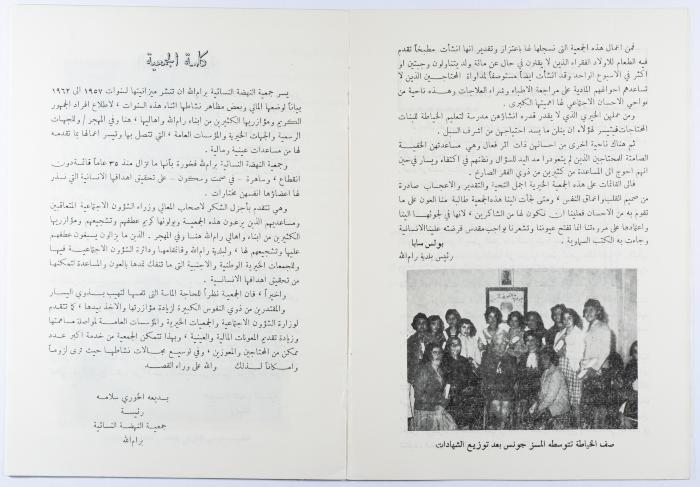 كلمة الجمعية
يسر جمعية النهضة النسائية برام‌الله ان تنشر ميزانيتها لسنوات ١٩٥٧ الى ١٩٦٢
بياناً لوضعها المالي وبعض مظاهر نشاطها اثناء هذه السنوات ، لاطلاع افراد الجمهور
الكريم ومؤازريها الكثيرين من ابناء رام‌الله واهاليها ، هنا وفي المهجر / وللجهات
الرسمية والجهات الخيرية والمؤسسات العامة ، التي تتصل بها وتيسر اعمالها بما تقدمه
لها من مساعدات عينية ومالية .
وجمعية النهضة النسائية برام‌الله فخورة بأنها ما تزال منذ ٣٥ عاماً قائمة دون
انقطاع ، وساهرة – في صمت وسكون – على تحقيق اهدافها الانسانية التي نذر
لها اعضاؤها انفسهن مختارات .
وهي تتقدم بأجزل الشكر لاصحاب المعالي وزراء الشؤون الاجتماعية المتعاقبين
ومساعديهم الذين يرعون هذه الجمعية ويولونها كريم عطفهم وتشجيعهم ، ومؤازريها
الكثيرين من ابناء واهالي رام‌الله هنا وفي المهجر . الذين ما يزالون يسبغون عطفهم
عليها وتشجيعهم لها ، ولبلدية رام‌الله وقائمقامها ودائرة الشؤون الاجتماعية فيها
وللجمعيات الخيرية الوطنية والاجنبية التي ما تنفك تمدها بالعون والمساعدة لتمكنها
من تحقيق اهدافها الانسانية .
واخيراً ، فان الجمعية نظراً للحاجة الماسة التي تلمسها لتهيب بذوي اليسار
والمقتدرين من ذوي النفوس الكبيرة لزيادة مؤازرتها والاخذ بيدها ، كما تتقدم
لوزارة الشؤون الاجتماعية والجمعيات الخيرية والمؤسسات العامة لمواصلة مساهمتها
وزيادة تقديم المعونات المالية والعينية ، وبهذا تتمكن الجمعية من خدمة اكبر عدد
ممكن من المحتاجين والمعوزين . وفي توسيع مجالات نشاطها حيث ترى لزوماً
وامكاناً لذلك والله على وراء القصد
بديعه الخوري سلامه
رئيسة
جمعية النهضة النسائية
برام‌الله
فمن اعمال هذه الجمعية التي نسجلها لها باعتزاز وتقدير انها انشأت مطبخاً تقدم
فيه الطعام للاولاد الفقراء الذين لا يقلون في حال عن مائة ولد يتناولون وجبتين او
اكثر في الاسبوع الواحد وقد انشأت ايضاً مستوصفاً لمداواة المحتاجين الذين لا
تساعدهم احوالهم المادية على مراجعة الاطباء وشراء العلاجات وهذه ناحية من
نواحي الاحسان الاجتماعي لها اهميتها الكبرى .
ومن عملهن الخيري الذي لا يقدر قدره انشاؤهن مدرسة لتعليم الخياطة للبنات
المحتاجات فيتيسر لهؤلاء ان ينلن ما يسد احتياجهن من اشرف السبل .
ثم هناك ناحية اخرى من احسانهن ذات اثر فعال وهي مساعدتهن الخفية
الصامتة للمحتاجين الذين لم يتعودوا مد اليد للسؤال وتظنهم في اكتفاء ويسار في حين
انهم احوج الى المساعدة من كثيرين من ذوي الفقر الصارخ .
فالى القائمات على هذه الجمعية الخيرية اجمل التحية والتقدير والاعجاب صادرة
من صميم القلب واعماق النفس ، ومتى لجأت الينا هذه الجمعية طالبة منا العون على ما
تقوم به من الاحسان فعلينا ان نكون لها من الشاكرين ، لانها في لجوئها الينا
واعتمادها على مروءتنا انما تفتح عيوننا وتشعرنا بواجب مقدس فرضته علينا الانسانية
وجاءت به الكتب السماوية .
بولس سابا
رئيس بلدية رام‌الله
صف الخياطة تتوسطه المسز جونس بعد توزيع الشهادات